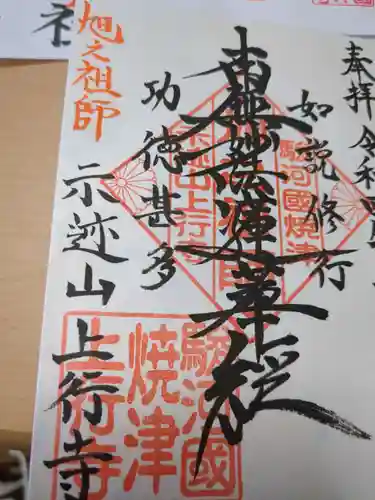 奉拝 令和
如説修行
南無妙法蓮華経
功徳甚多
旭之祖師
示迹山上行寺
駿河國焼津
示迹山上行寺
駿河國
焼津
上行寺